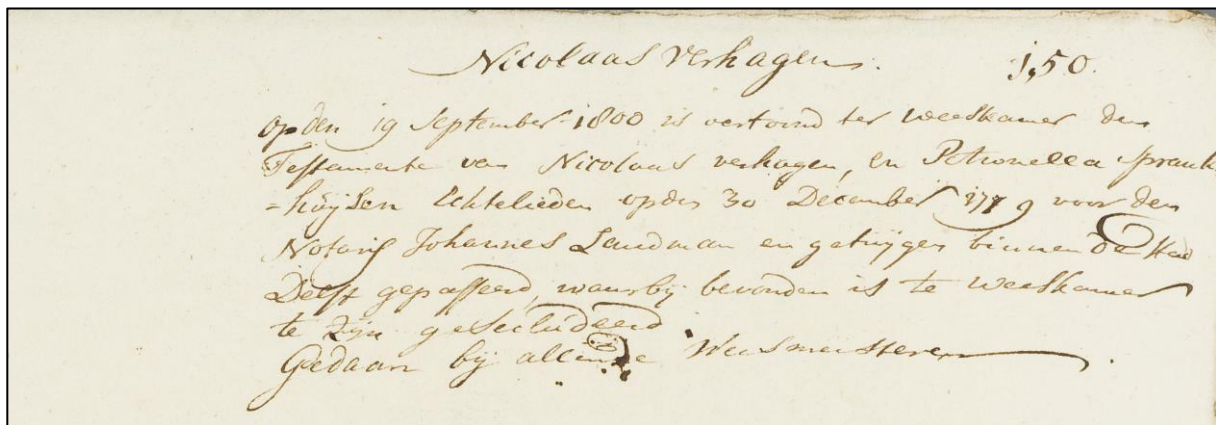 Nicolaas Verhagen. 1,50.
op den 19 September 1800 is vertoond ter weeskamer den
Testamente van Nicolaas verhagen, en Petronella Spronk
=huijsen Echtelieden op den 30 December 1779 voor den
Notaris Johannes Landman en getuijgen binnen de stad
Delft gepasseerd, waarbij bevonden is te weeskamer
te zijn geSecludeerd
Gedaan bij alle de Weesmeesteren